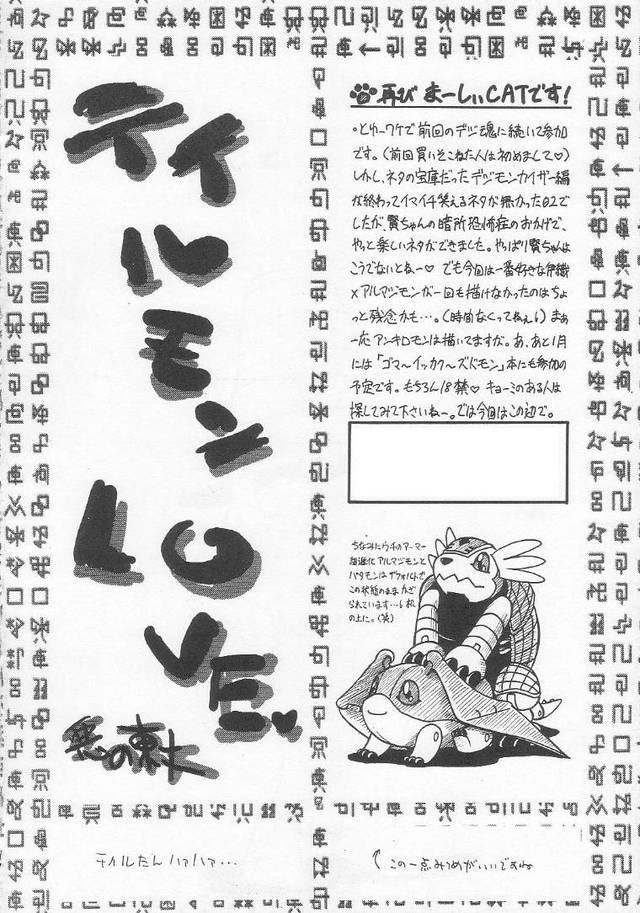 再び まーしぃCATです!
・とゆーワケで前回のデジ魂に続いて参加
です。(前回買いそこねた人は初めまして♡)
しかし、ネタの宝庫だったデジモンカイザー編
が終わってイマイチ笑えるネタが無かった02で
したが、賢ちゃんの暗所恐怖症のおかげで、
やっと楽しいネタができました。やっぱり賢ちゃんは
こうでないとねー♡ でも今回は一番好きな伊織
×アルマジモンが一回も描けなかったのはちょ
っと残念かも…。(時間なくってねぇ) まぁ
一応アンキロモンは描いてますが。あ、あと1月
には「ゴマ〜イッカク〜ズドモン」本にも参加の
予定です。もちろん18禁♡ キョーミのある人は
探してみて下さいねー。では今回はこの辺で。
ちなみにウチのアーマー
超進化アルマジモンと
パタモンはデフォルトで
この状態のままかざ
られています…机
の上に。(笑)
↑この一点みつめがいいですね
テイルモン
LOVE♡
悪の東士
テイルたんハァハァ…